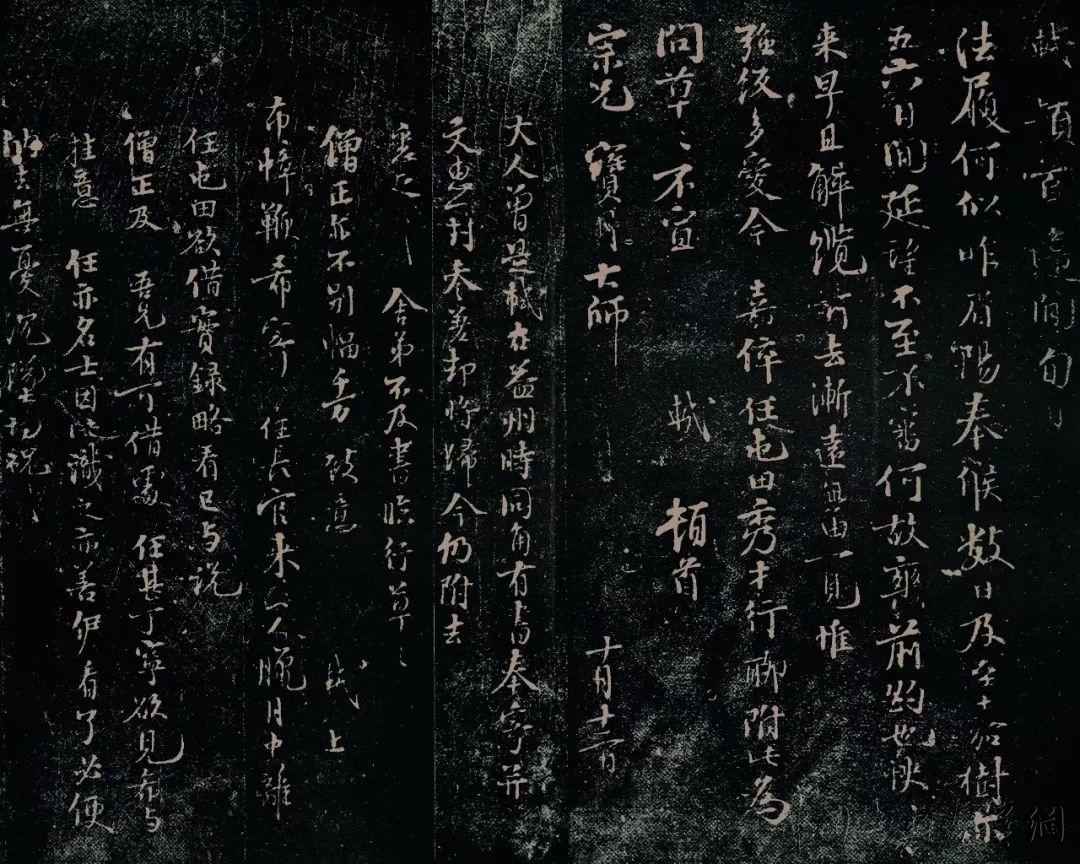 軾頓首違間旬日
法履何似昨眉陽奉候數日及至十餘樹亦
五六日間延望不至不審何故爽前約也快快
来早且解纜前去漸遠無由一見惟
強飯多愛今 嘉倅任屯田秀才行聊附此為
問草々不宣 軾 頓首
宗兄寶月大師 十月十二日
大人曾是軾在益州時同角有書奉寄并
文惠封奉善却將歸今仍附去
舍弟不及書臨行草々
僧正亦不别幅千万致意 軾上
布幃鞭希寄 任長官未公人臘月中離
任屯田欲借寶録略看已与說
僧正及 吾兄有可借處 任甚丁寧欲見希与
挂意 任亦名士因此識之亦善伊看了必便
納去無憂沉墜祝祝